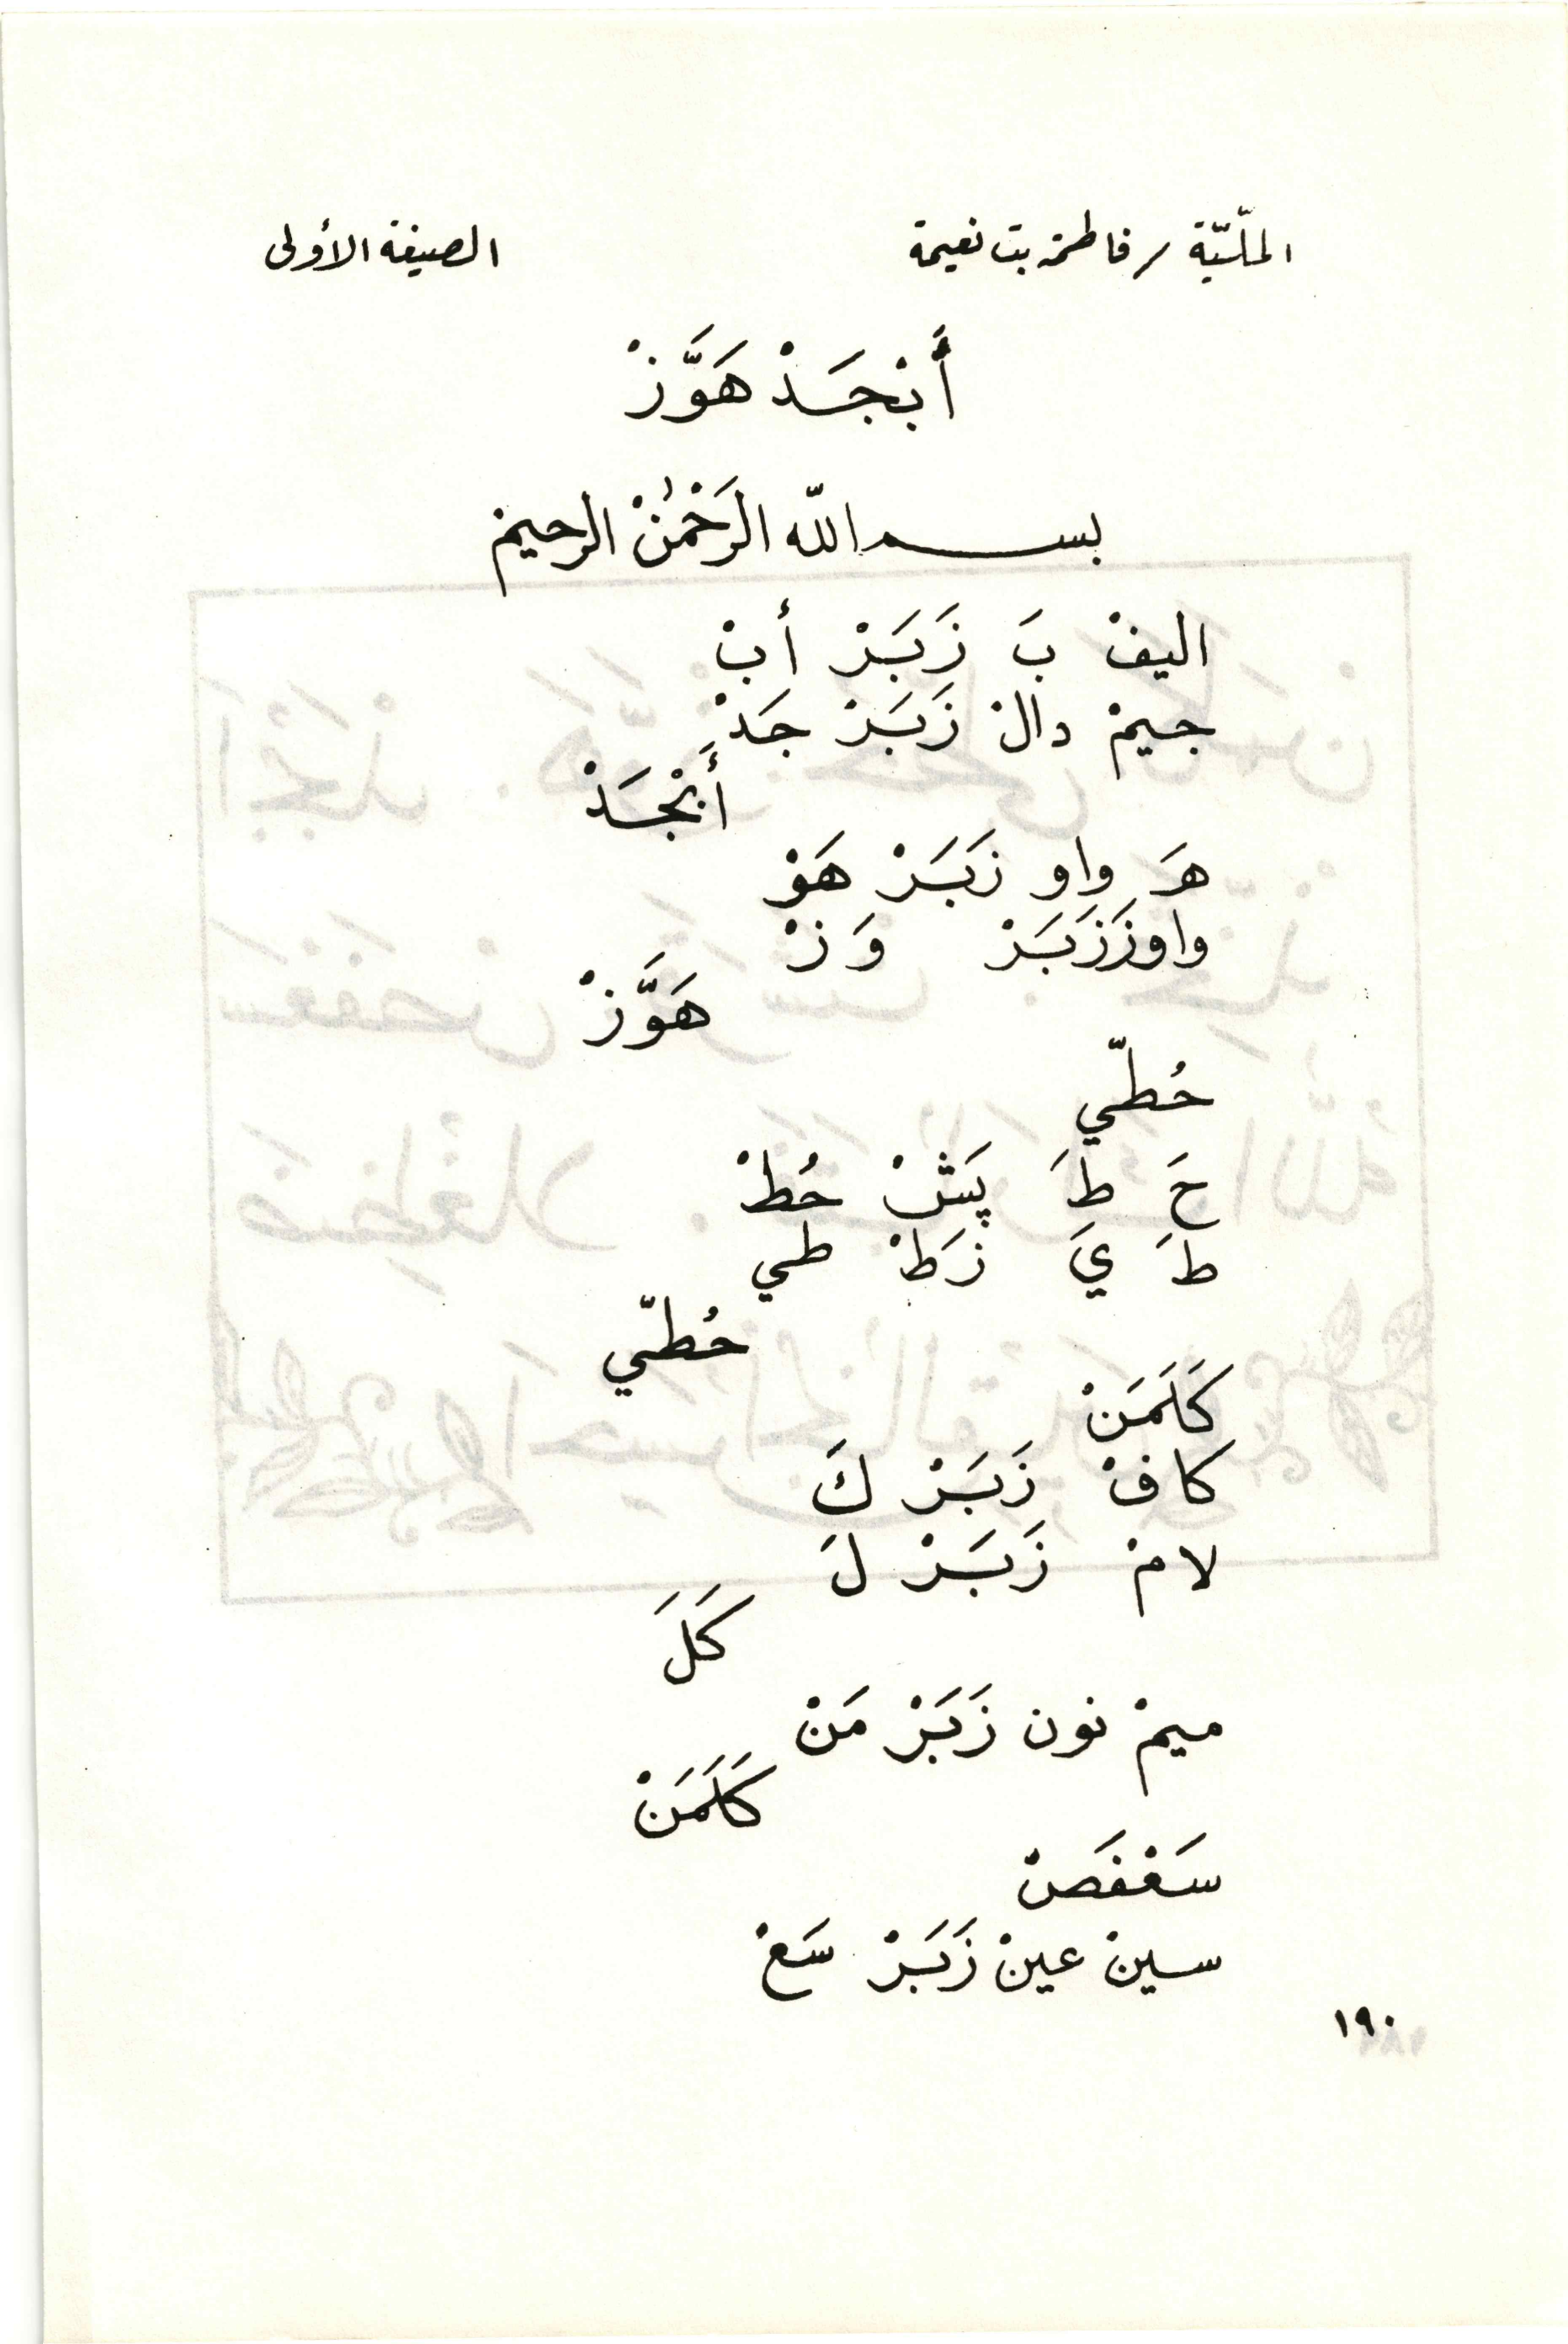 الملّيّة / فاطمة بت نعيمة الصيغة الأولى
أَبْجَدْ هَوَّزْ
بسم اللّه الرَحْمٰنْ الرحيمْ
اليفْ بَ زَبَرْ أبْ
جيمْ دالْ زَبَرْ جَدْ
أَبْجَدْ
هَ واو زَبَرْ هَوْ
واوزَزَبَرْ وَزْ
هَوَّزْ
حُطّي
حَ طَ پَشْ حُطْ
طَ يَ زَطْ طي
حُطّي
كَلَمَنْ
كافْ زَبَرْ كَ
لامْ زَبَرْ لَ
كَلَ
ميمْ نون زَبَرْ مَنْ
كَلَمَنْ
سَعْفَصْ
سينْ عينْ زَبَرْ سَعْ
١٩٠